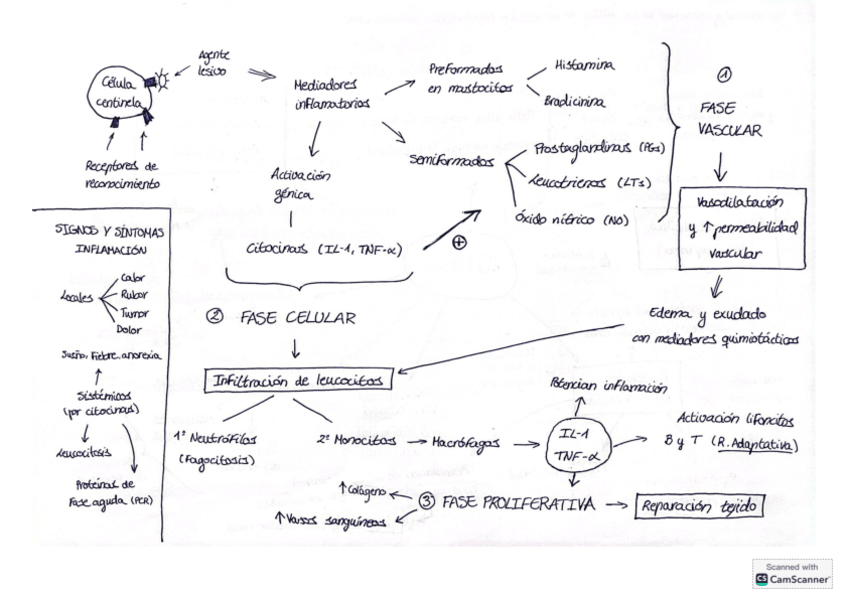 Agente
lesivo
Célula
centinela
Receptores de
reconocimiento
Mediadores
inflamatorios
Preformados
en mastocitos
Histamina
Bradicinina
Semiformados
Prostaglandinas (PGs)
Leucotrienos (LTs)
Óxido nítrico (NO)
Activación
génica
Citocinas (IL-1, TNF-α)
+
1
FASE
VASCULAR
Vasodilatación
y ↑ permeabilidad
vascular
Edema y exudado
con mediadores quimiotácticos
2 FASE CELULAR
Infiltración de leucocitos
1º Neutrófilos
(Fagocitosis)
2º Monocitos → Macrófagos →
IL-1
TNF-α
Potencian inflamación
Activación lifoncitos
B y T (R. Adaptativa)
3 FASE PROLIFERATIVA → Reparación tejido
↑ Colágeno
↑ Vasos sanguíneos
SIGNOS Y SÍNTOMAS
INFLAMACIÓN
Locales
Calor
Rubor
Tumor
Dolor
Sueño, Fiebre, anorexia
Sistémicos
(por citocinas)
Leucocitosis
Proteínas de
Fase aguda (PCR)
Scanned with
CS CamScanner